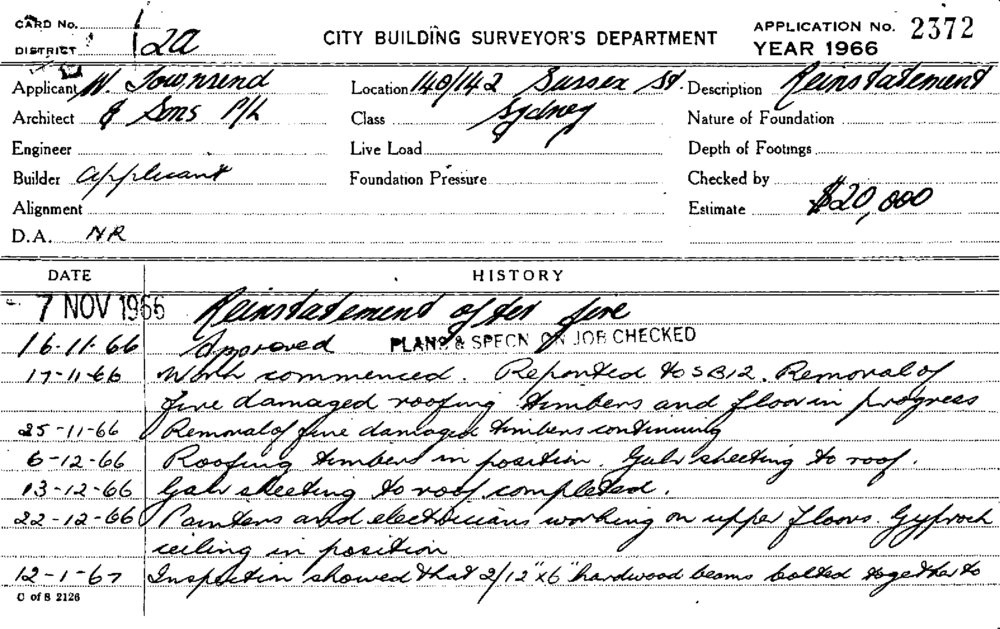 CARD No. 1
DISTRICT 2a
CITY BUILDING SURVEYOR'S DEPARTMENT
APPLICATION No. 2372
YEAR 1966
Applicant W. Townsend
Architect & Sons P/L
Engineer
Builder Applicant
Alignment
D.A. NR
Location 140/142 Sussex St.
Class Sydney
Live Load
Foundation Pressure
Description Reinstatement
Nature of Foundation
Depth of Footings
Checked by
Estimate $20,000
DATE HISTORY
7 NOV 1966 Reinstatement after fire
16-11-66 Approved PLANS & SPECN ON JOB CHECKED
17-11-66 Work commenced. Reported to SB12. Removal of
fire damaged roofing timbers and floor in progress
25-11-66 Removal of fire damaged timbers continuing
6-12-66 Roofing timbers in position. Galv sheeting to roof.
13-12-66 Galv sheeting to roof completed.
22-12-66 Painters and electricians working on upper floors. Gyprock
ceiling in position
12-1-67 Inspection showed that 2/12"x6" hardwood beams bolted together to
C of S 2126